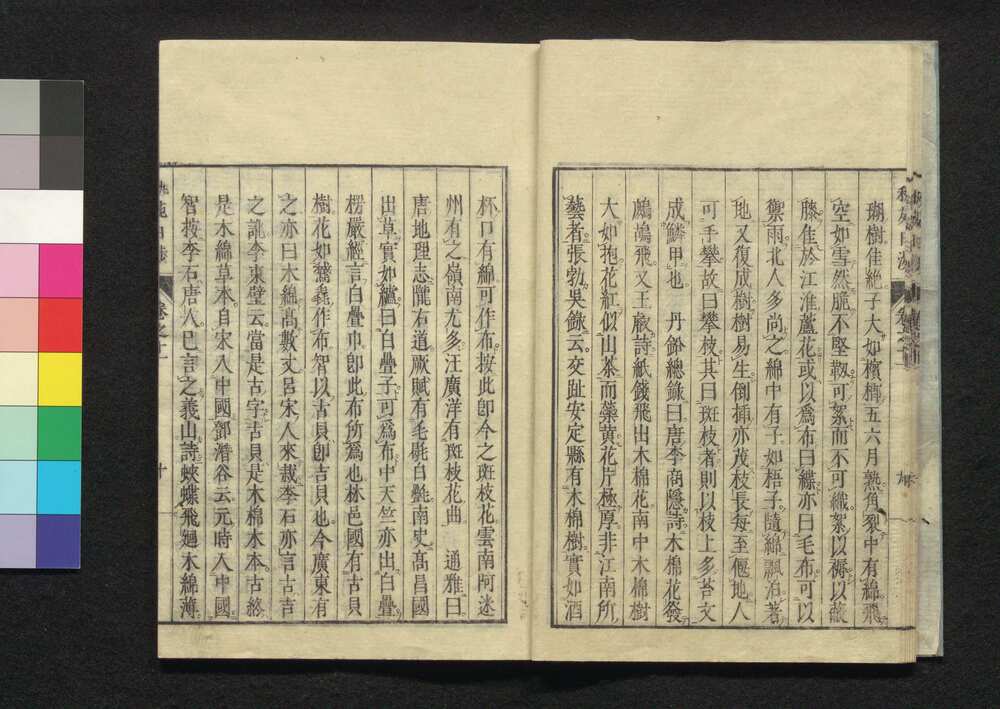 瑚樹佳絶子大如檳榔五六月熟角裂中有綿飛
空如雪然脆不堅靱可絮而不可織絮以褥以蔽
膝佳於江淮蘆花或以爲布曰緤亦曰毛布可以
禦雨北人多尚之綿中有子如梧子隨綿飄泊著
地又復成樹樹易生倒插亦茂枝長每至偃地人
可手攀故曰攀枝其曰斑枝者則以枝上多苔文
成鱗甲也　丹鉛總錄曰唐李商隱詩木棉花發
鷓鴣飛又王叡詩紙錢飛出木棉花南中木棉樹
大如抱花紅似山茶而蘂黄花片極厚非江南所
藝者張勃吳錄云交趾安定縣有木棉樹實如酒
九
杯口有綿可作布按此卽今之斑枝花雲南阿迷
州有之嶺南尤多汪廣洋有斑枝花曲　通雅曰
唐地理志隴右道厥賦有毛毼白㲲南史髙昌國
出草實如繭曰白疊子可爲布中天竺亦出白疊
楞嚴經言白疊巾卽此布所爲也林邑國有古貝
樹花如鵞毳作布智以古貝卽吉貝也今廣東有
之亦曰木綿髙數丈呂宋人來裁李石亦言古吉
之訛李東壁云當是古字吉貝是木棉木本古終
是木綿草本自宋入中國鄧潛谷云元時入中國
智按李石唐人巳言之義山詩蛺蝶飛廻木綿薄
卷之十一
十